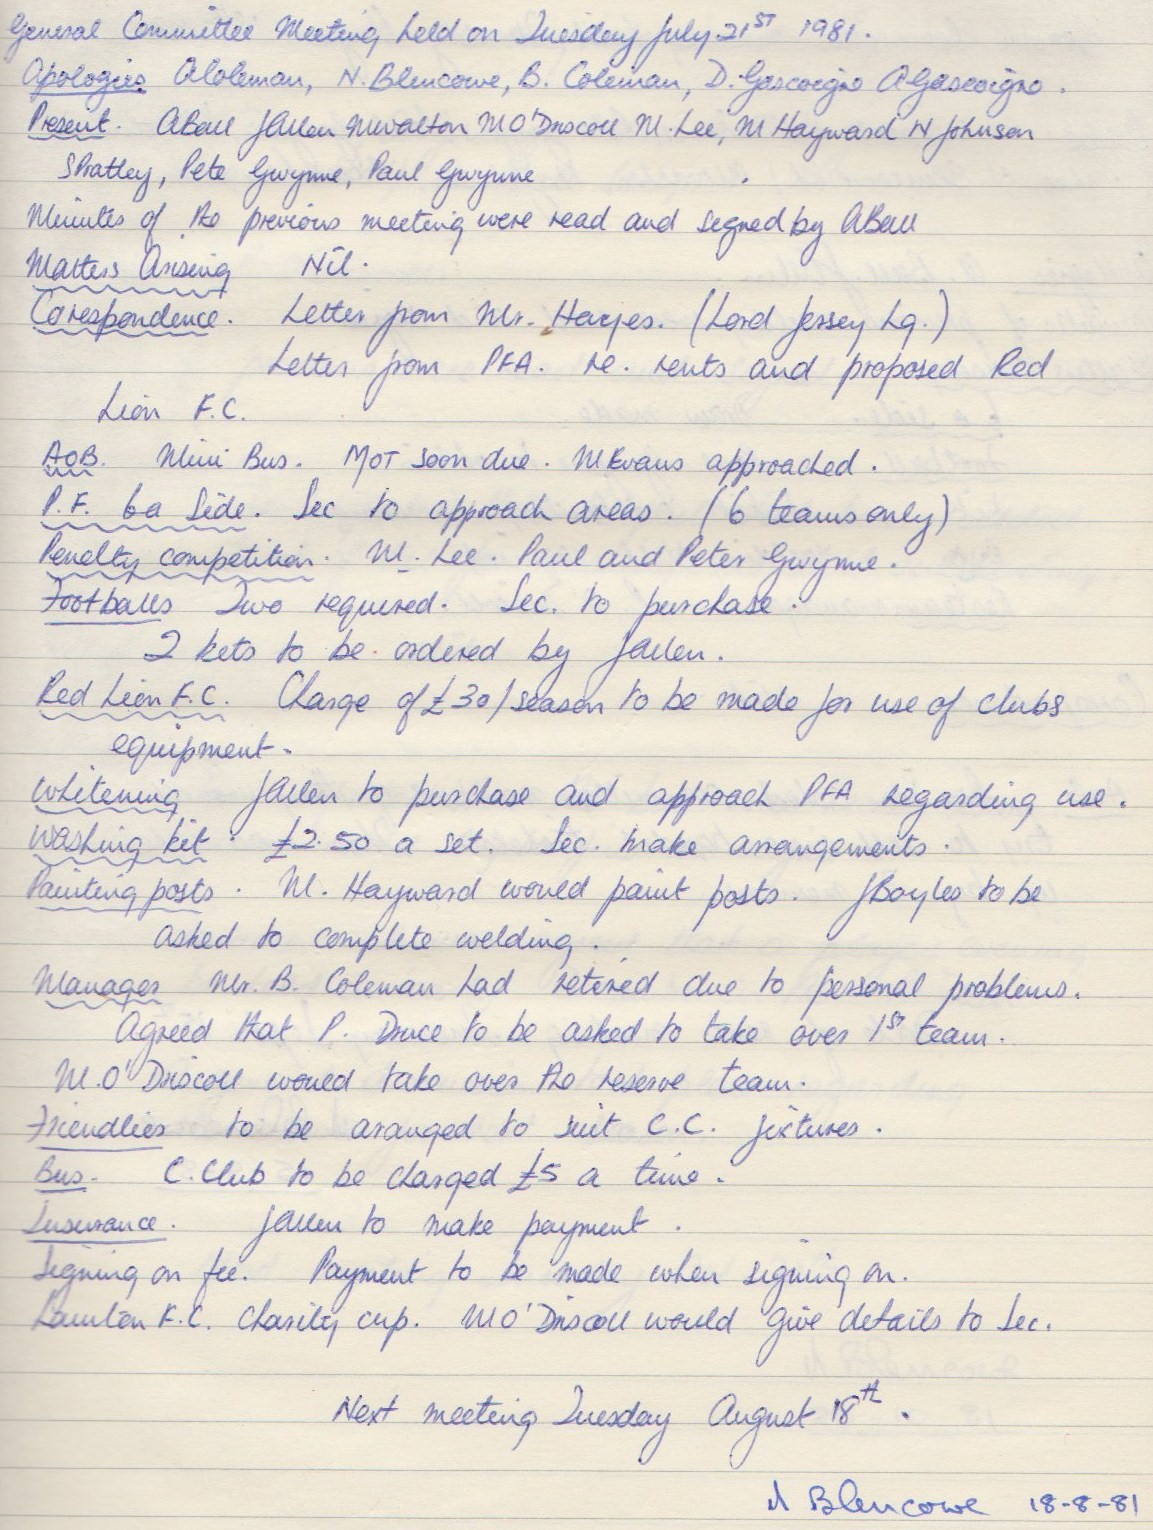 General Committee Meeting held on Tuesday July 21ST 1981.
Apologies A Coleman, N. Blencowe, B. Coleman, D. Gascoigne A Gascoigne.
Present. A Ball J Allen M Walton M O'Driscoll M. Lee, M Hayward N Johnson
S Pratley, Pete Gwynne, Paul Gwynne
Minutes of the previous meeting were read and signed by A Ball
Matters Arising Nil.
Corespondence. Letter from Mr. Hayes. (Lord Jersey Lg.)
Letter from PFA. re. rents and proposed Red
Lion F.C.
AOB. Mini Bus. MOT soon due. M Evans approached.
P.F. 6 a Side. Sec to approach areas. (6 teams only)
Penalty competition. M. Lee. Paul and Peter Gwynne.
Footballs Two required. Sec. to purchase.
2 kets to be ordered by J Allen.
Red Lion F.C. Charge of £30/season to be made for use of clubs
equipment.
Whitening J Allen to purchase and approach PFA regarding use.
Washing kit. £2.50 a set. Sec. make arrangements.
Painting posts. M. Hayward would paint posts. J Boyles to be
asked to complete welding.
Manager Mr. B. Coleman had retired due to personal problems.
Agreed that P. Druce to be asked to take over 1ST team.
M.O'Driscoll would take over the reserve team.
Friendlies to be aranged to suit C.C. fixtures.
Bus. C. Club to be charged £5 a time.
Insurance. J Allen to make payment.
Signing on fee. Payment to be made when signing on.
Launton F.C. Charity cup. M O'Driscoll would give details to Sec.
Next meeting Tuesday August 18th.
N Blencowe 18-8-81